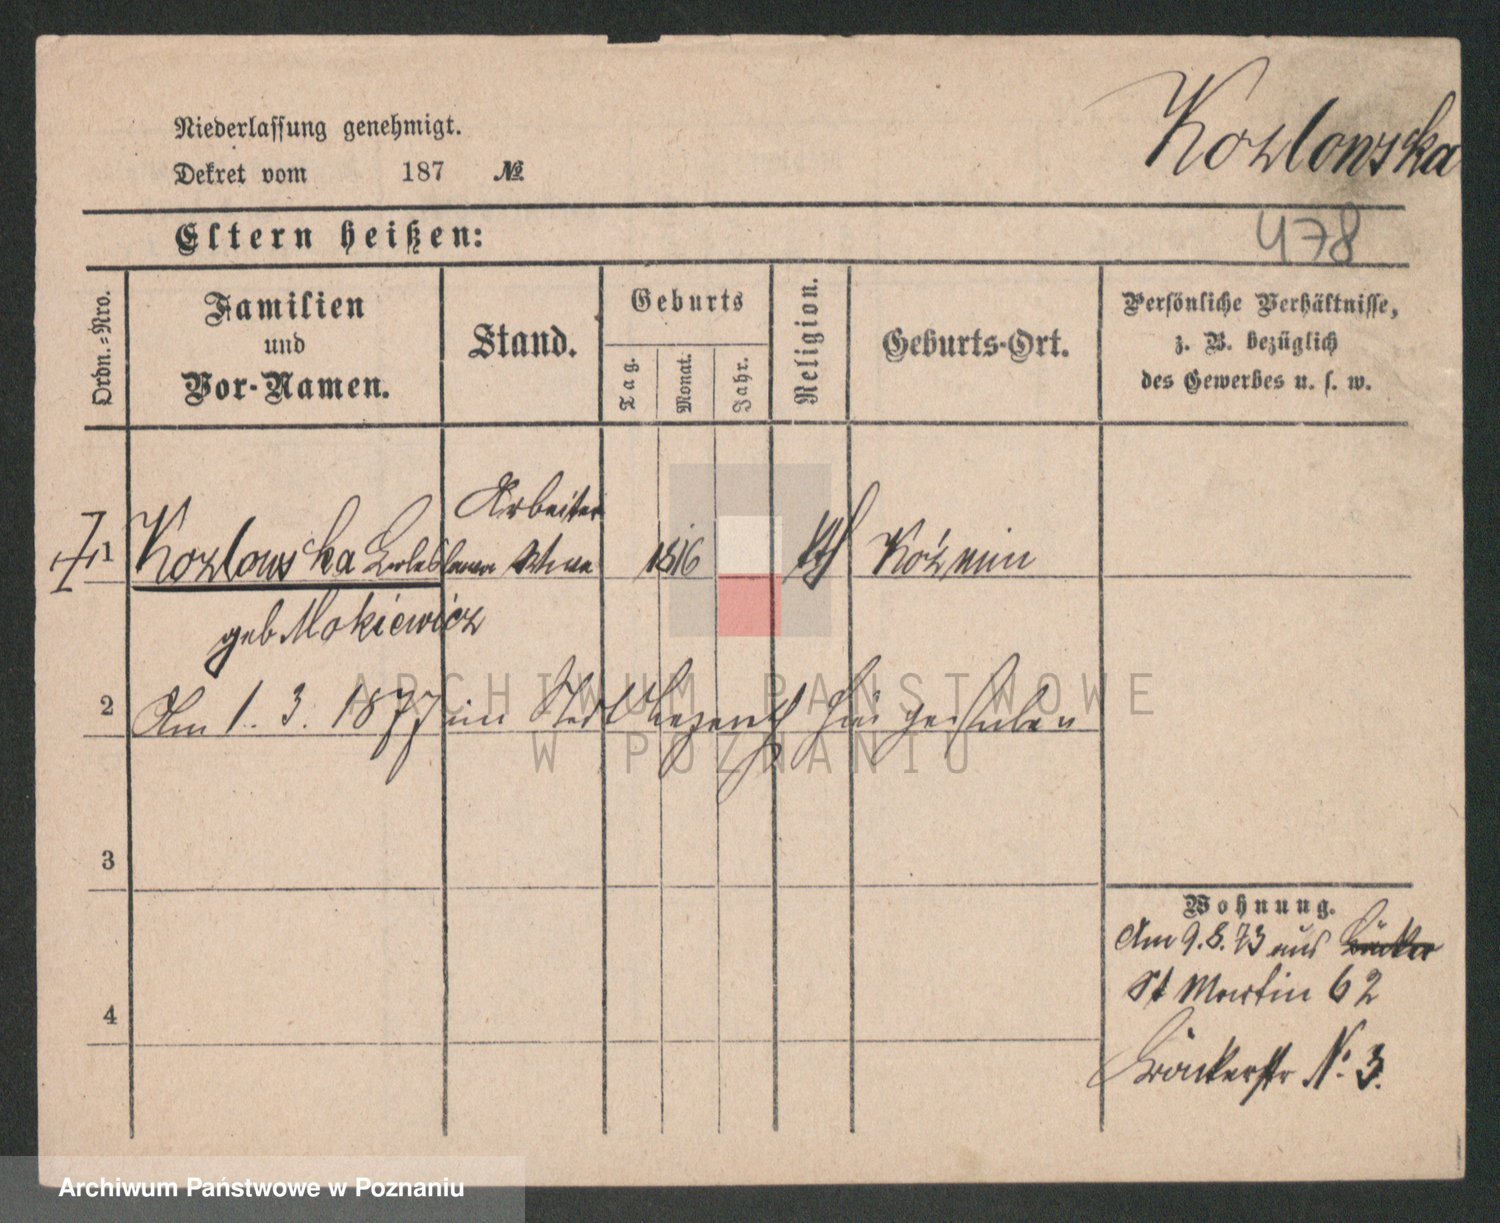 Niederlassung genehmigt.
Dekret vom 187 №
Kozlowska
478
Eltern heißen:
Ordn.-Nro.
Familien
und
Vor-Namen.
Stand.
Geburts
Tag.
Monat.
Jahr.
Religion.
Geburts-Ort.
Persönliche Verhältnisse,
z. B. bezüglich
des Gewerbes u. s. w.
Arbeiter
1 Kozlowska Wwe 1816 kth Koźmin
geb Mokiewicz
2 Am 1. 3. 1877 im hier gestorben
3
4
Wohnung.
Am 9. 8. 73 aus Bäcker
St Martin 62
Bäckerstr No. 3.
ARCHIWUM PAŃSTWOWE
W POZNANIU
Archiwum Państwowe w Poznaniu